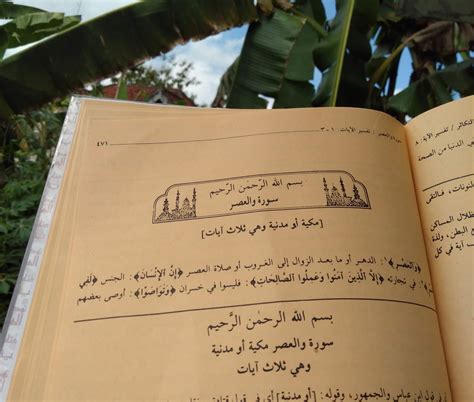 ٤٧١
سورة والعصر / تفسير الآيات : ١ - ٣
بسم الله الرّحمٰن الرّحيم
سورة والعصر
[مكية أو مدنية وهي ثلاث آيات]
﴿وَالْعَصْرِ﴾: الدهر أو ما بعد الزوال إلى الغروب أو صلاة العصر ﴿إِنَّ الإِنْسَانَ﴾: الجنس ﴿لَفِي
في تجارته ﴿إِلاَّ الَّذِينَ آمَنُوا وَعَمِلُوا الصَّالِحَاتِ﴾: فليسوا في خسران ﴿وَتَوَاصَوْا﴾: أوصى بعضهم
بسم الله الرحمٰن الرَّحيم
سورة والعصر مكية أو مدنية
وهي ثلاث آيات
ابن عباس والجمهور، وقوله: [أو مدنية] أي في قول قتادة
التكاثر / تفسير الآية : ٨
الدنيا من الصحة